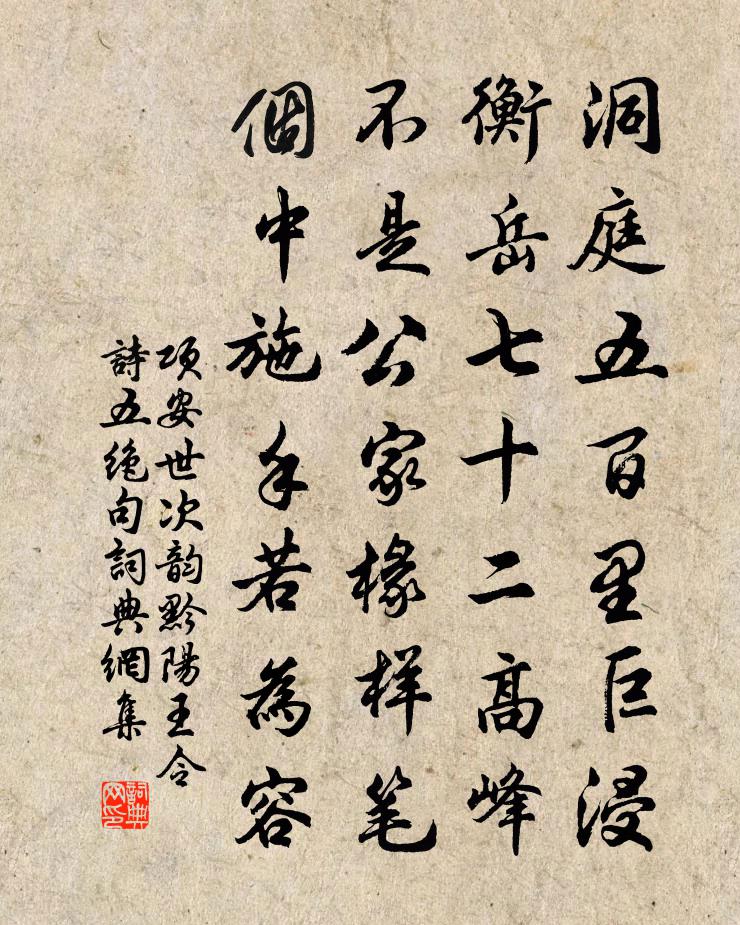 洞庭五百里巨浸
衡岳七十二高峰
不是公家椽样笔
個中施手若為容
項安世次韵黔陽王令
詩五絶句詞典網集
詞典网印